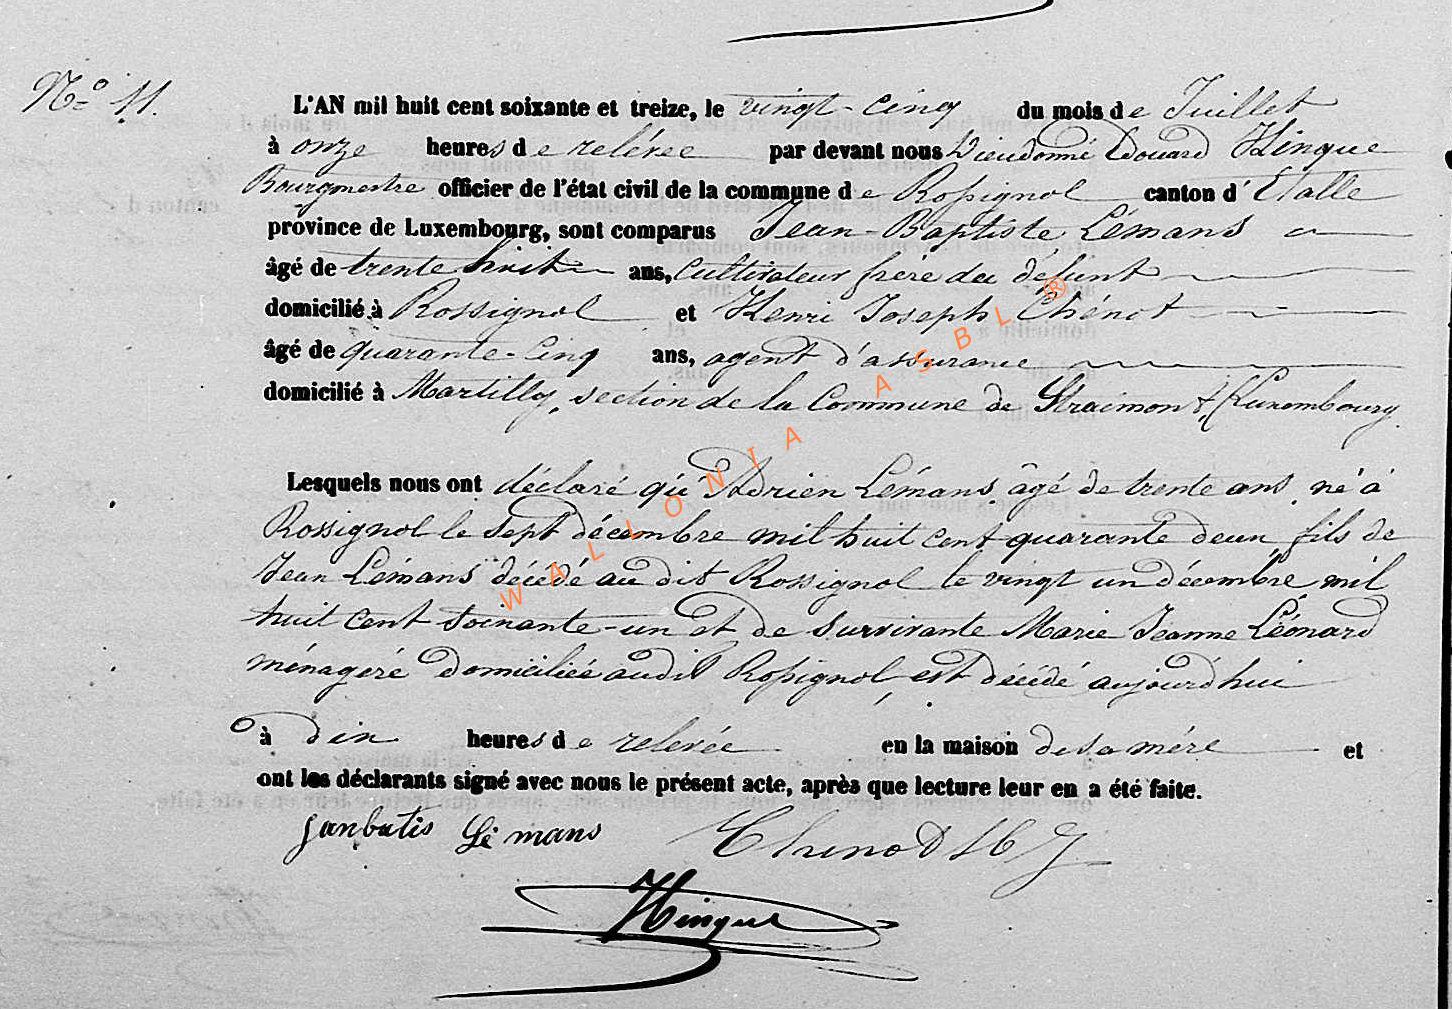 N.º 11.
L'AN mil huit cent soixante et treize, le vingt-cinq du mois de Juillet
à onze heures de relévée par devant nous Dieudonné Edouard Hinque
Bourgmestre officier de l'état civil de la commune de Rossignol canton d'Etalle
province de Luxembourg, sont comparus Jean-Baptiste Lémans
âgé de trente huit ans, Cultivateur frère du défunt
domicilié à Rossignol et Henri Joseph Thénot
âgé de quarante-cinq ans, agent d'assurance
domicilié à Martilly, section de la Commune de Straimont, (Luxembourg
Lesquels nous ont déclaré qu'Adrien Lémans, âgé de trente ans, né à
Rossignol le sept décembre mil huit cent quarante deux, fils de
Jean Lémans décédé au dit Rossignol le vingt un décembre mil
huit cent soixante-un et de survivante Marie Jeanne Léonard
ménagère domiciliée audit Rossignol, est décédé aujourd'hui
à dix heures de relevée en la maison de sa mère et
ont les déclarants signé avec nous le présent acte, après que lecture leur en a été faite.
janbatis Lé mans Thenot H J
Hinque
WALLONIA ASBL ®